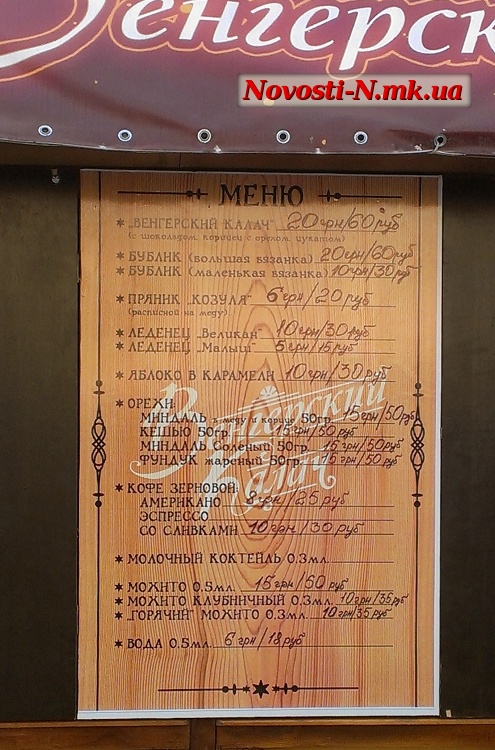 Венгерск
Novosti-N.mk.ua
МЕНЮ
* „ВЕНГЕРСКИЙ КАЛАЧ" 20 грн/60 руб
(с шоколадом, корицей, с орехом, цукатом)
* БУБЛИК (большая вязанка) 20 грн/60 руб
* БУБЛИК (маленькая вязанка) 10 грн/30 руб
* ПРЯНИК „КОЗУЛЯ" 6 грн/20 руб
(расписной на меду)
* ЛЕДЕНЕЦ „Великан" 10 грн/30 руб
* ЛЕДЕНЕЦ „Малыш" 5 грн/15 руб
* ЯБЛОКО В КАРАМЕЛИ 10 грн/30 руб
Венгерский Калач
* ОРЕХИ:
МИНДАЛЬ в меду и корице 50гр. 15 грн/50 руб
КЕШЬЮ 50гр. 15 грн/50 руб
МИНДАЛЬ Соленый 50гр. 15 грн/50 руб
ФУНДУК жареный 50гр. 15 грн/50 руб
* КОФЕ ЗЕРНОВОЙ:
АМЕРИКАНО 8 грн/25 руб
ЭСПРЕССО
СО СЛИВКАМИ 10 грн/30 руб
* МОЛОЧНЫЙ КОКТЕЙЛЬ 0.3мл.
* МОХИТО 0.5мл. 15 грн/60 руб
* МОХИТО КЛУБНИЧНЫЙ 0.3мл. 10 грн/35 руб
* „ГОРЯЧИЙ" МОХИТО 0.3мл. 10 грн/35 руб
* ВОДА 0.5мл. 6 грн/18 руб